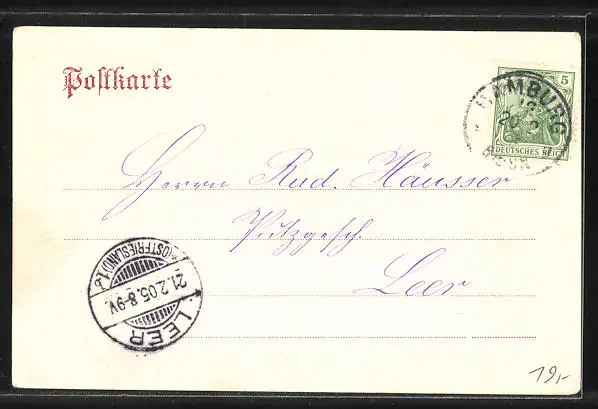 Postkarte
5
DEUTSCHES REICH
HAMBURG
Herrn Rud. Häusser
Putzgesch.
Leer
(OSTFRIESLAND) 1.a
21.2.05.8-9V.
LEER
19,-